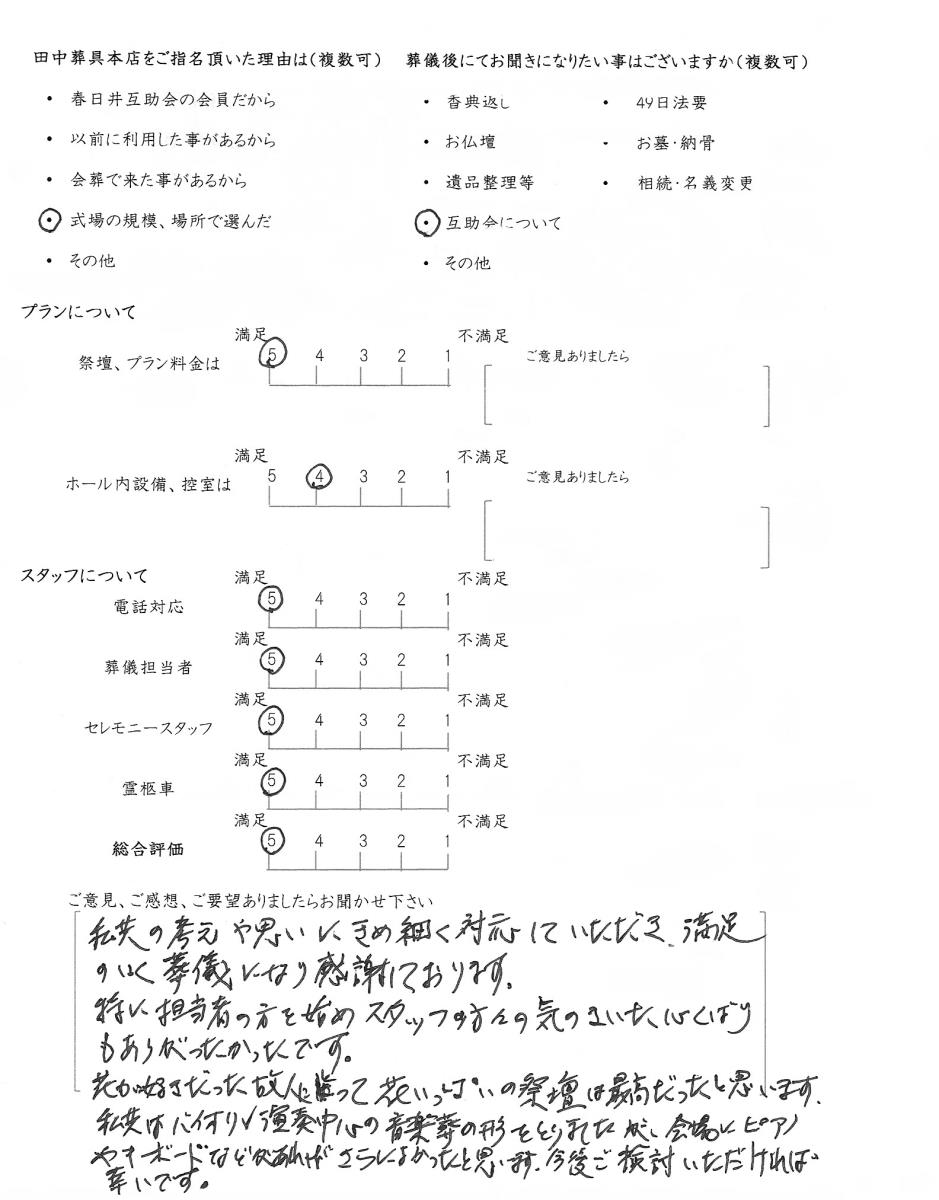 田中葬具本店をご指名頂いた理由は(複数可)
・ 春日井互助会の会員だから
・ 以前に利用した事があるから
・ 会葬で来た事があるから
・ 式場の規模、場所で選んだ
・ その他
葬儀後にてお聞きになりたい事はございますか(複数可)
・ 香典返し ・ 49日法要
・ お仏壇 ・ お墓・納骨
・ 遺品整理等 ・ 相続・名義変更
・ 互助会について
・ その他
プランについて
満足 不満足
祭壇、プラン料金は 5 4 3 2 1 ご意見ありましたら
満足 不満足
ホール内設備、控室は 5 4 3 2 1 ご意見ありましたら
スタッフについて
満足 不満足
電話対応 5 4 3 2 1
満足 不満足
葬儀担当者 5 4 3 2 1
満足 不満足
セレモニースタッフ 5 4 3 2 1
満足 不満足
霊柩車 5 4 3 2 1
満足 不満足
総合評価 5 4 3 2 1
ご意見、ご感想、ご要望ありましたらお聞かせ下さい
私共の考えや思いにきめ細く対応していただき、満足
のいく葬儀になり感謝しております。
特に担当者の方を始めスタッフの方々の気のきいた心くばり
もありがたかったです。
花が好きだった故人に�って花いっぱいの祭壇は最高だったと思います。
私共はバイオリン演奏中心の音楽葬の形をとりましたが、会場にピアノ
やキーボードなどがあればさらによかったと思います。今後ご検討いただければ
幸いです。